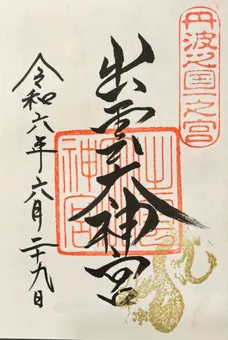 丹波之国一之宮
出雲大神宮
令和六年六月二十九日